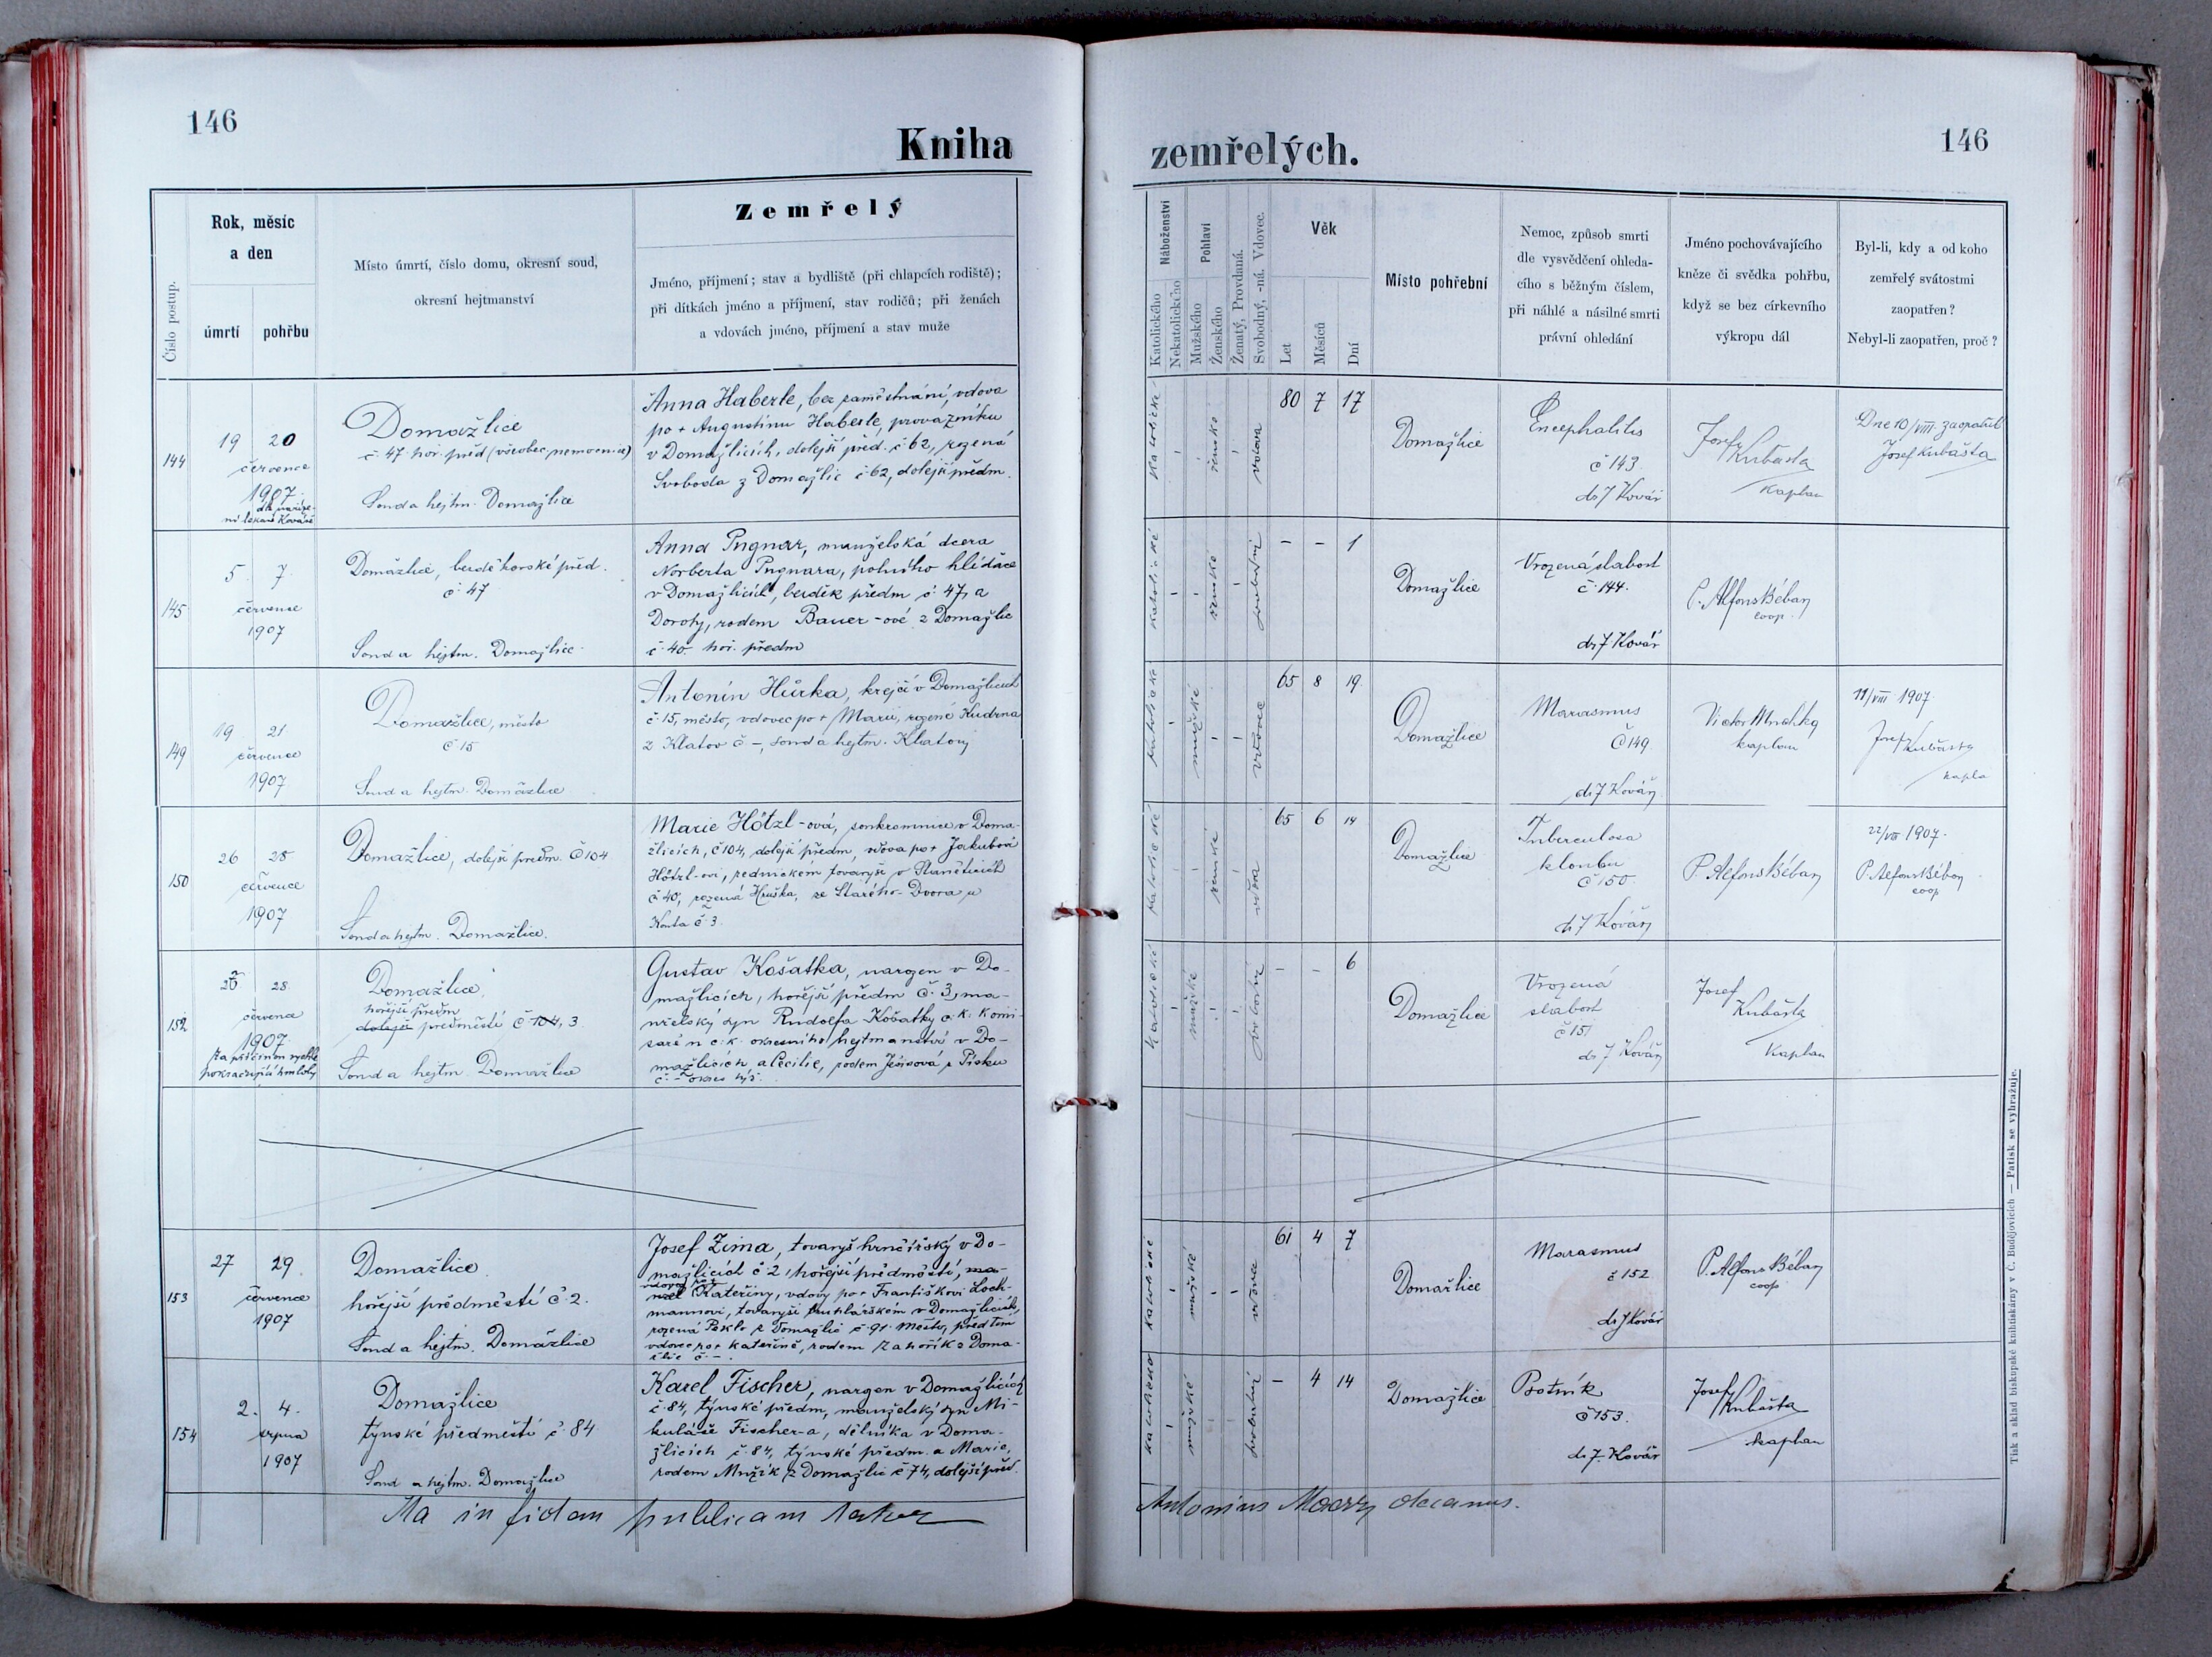 146
Kniha
Číslo postup.
Rok, měsíc
a den
úmrtí
pohřbu
Místo úmrtí, číslo domu, okresní soud,
okresní hejtmanství
Zemřelý
Jméno, příjmení; stav a bydliště (při chlapcích rodiště);
při dítkách jméno a příjmení, stav rodičů; při ženách
a vdovách jméno, příjmení a stav muže
144
19 20
července
1907
Domažlice
č. 47 hoř. před (všeobec. nemocnice)
Soud a hejtm. Domažlice
Anna Haberle, bez zaměstnání, vdova
po + Augustinu Haberle, provazníku
v Domažlicích, dolejší před. č 62, rozená
Svoboda z Domažlic č 62, dolejší předm.
145
5. 7.
července
1907
Domažlice, bezděkovské před.
č. 47
Soud a hejtm. Domažlice
Anna Pugnar, manželská dcera
Norberta Pugnara, polního hlídače
v Domažlicích, bezděk předm č. 47, a
Doroty, rodem Bauer-ové z Domažlic
č. 40. hoř. předm
149
19 21
července
1907
Domažlice, město
č 15
Soud a hejtm. Domažlice
Antonín Hůrka, krejčí v Domažlicích
č. 15, město, vdovec po + Marii, rozené Kudrna
z Klatov č –, soud a hejtm. Klatovy
150
26 28
července
1907
Domažlice, dolejší předm. č 104
Soud a hejtm. Domažlice.
Marie Hötzl-ová, soukromnice v Doma-
žlicích, č 104, dolejší předm, vdova po + Jakubovi
Hötzl-ovi, tovaryši v
č 40, rozená Huška, ze Starého Dvora u
Kouta č. 3.
152
26 28
července
1907
Za příčinou rychle
pokračující hniloby
Domažlice,
hořejší předm
dolejší předměstí č 104, 3
Soud a hejtm. Domažlice
Gustav Košatka, narozen v Do-
mažlicích, hořejší předm č. 3, ma-
nželský syn Rudolfa Košatky c. k. komi-
saře n c. k. okresního hejtmanství v Do-
mažlicích a Cecilie, rodem z Písku
č. – okres týž.
153
27 29.
července
1907
Domažlice
hořejší předměstí č. 2.
Soud a hejtm. Domažlice
Josef Zima, tovaryš hrnčířský v Do-
mažlicích č 2, hořejší předměstí, ma-
Kateřiny, vdovy po + Františkovi Loch-
mannovi, tovaryši truhlářském v Domažlicích,
rozená z Domažlic č 91. Město, před tím
vdovec po + Kateřině, rodem Zahořík z Doma-
žlic č. –.
154
2. 4.
srpna
1907
Domažlice
týnské předměstí č 84
Soud a hejtm. Domažlice
Karel Fischer, narozen v Domažlicích
č. 84, týnské předm, manželský syn Mi-
kuláše Fischer-a, dělníka v Doma-
žlicích č. 84, týnské předm. a Marie,
rodem Mužík z Domažlic č 74, dolejší před.
Ita in fidem publicam
146
zemřelých.
Náboženství
Katolického
Nekatolického
Pohlaví
Mužského
Ženského
Ženatý, Provdaná.
Svobodný, -ná. Vdovec.
Věk
Let
Měsíců
Dní
Místo pohřební
Nemoc, způsob smrti
dle vysvědčení ohleda-
cího s běžným číslem,
při náhlé a násilné smrti
právní ohledání
Jméno pochovávajícího
kněze či svědka pohřbu,
když se bez církevního
výkropu dál
Byl-li, kdy a od koho
zemřelý svátostmi
zaopatřen?
Nebyl-li zaopatřen, proč?
katolické
ženské
vdova
80 7 17
Domažlice
Encephalitis
č 143
dr J Kovář
Josef
Kubašta
kaplan
Dne 10/VIII. zaopatřil
Josef Kubašta
katolické
ženské
svobodný
– – 1
Domažlice
Vrozená slabost
č. 144.
dr J Kovář
P. Alfons Béban
coop.
katolické
mužské
vdovec
65 8 19.
Domažlice
Marasmus
č 149
dr J Kovář
Victor
kaplan
11/VIII 1907.
Josef
Kubašta
kapla
katolické
ženské
vdova
65 6 14
Domažlice
Tuberculosa
kloubu
č 150.
dr J Kovář
P. Alfons Béban
22/VII 1907.
P. Alfons Béban
coop
katolické
mužské
svobodný
– – 6
Domažlice
Vrozená
slabost
č 151
dr J Kovář
Josef
Kubašta
Kaplan
katolické
mužské
vdovec
61 4 7
Domažlice
Marasmus
č 152
dr J Kovář
P. Alfons Béban
coop
katolické
mužské
svobodný
– 4 14
Domažlice
Psotník
č 153.
dr J. Kovář
Josef
Kubašta
kaplan
Antonius decanus.
Tisk a sklad biskupské knihtiskárny v Č. Budějovicích — Patisk se vyhražuje.